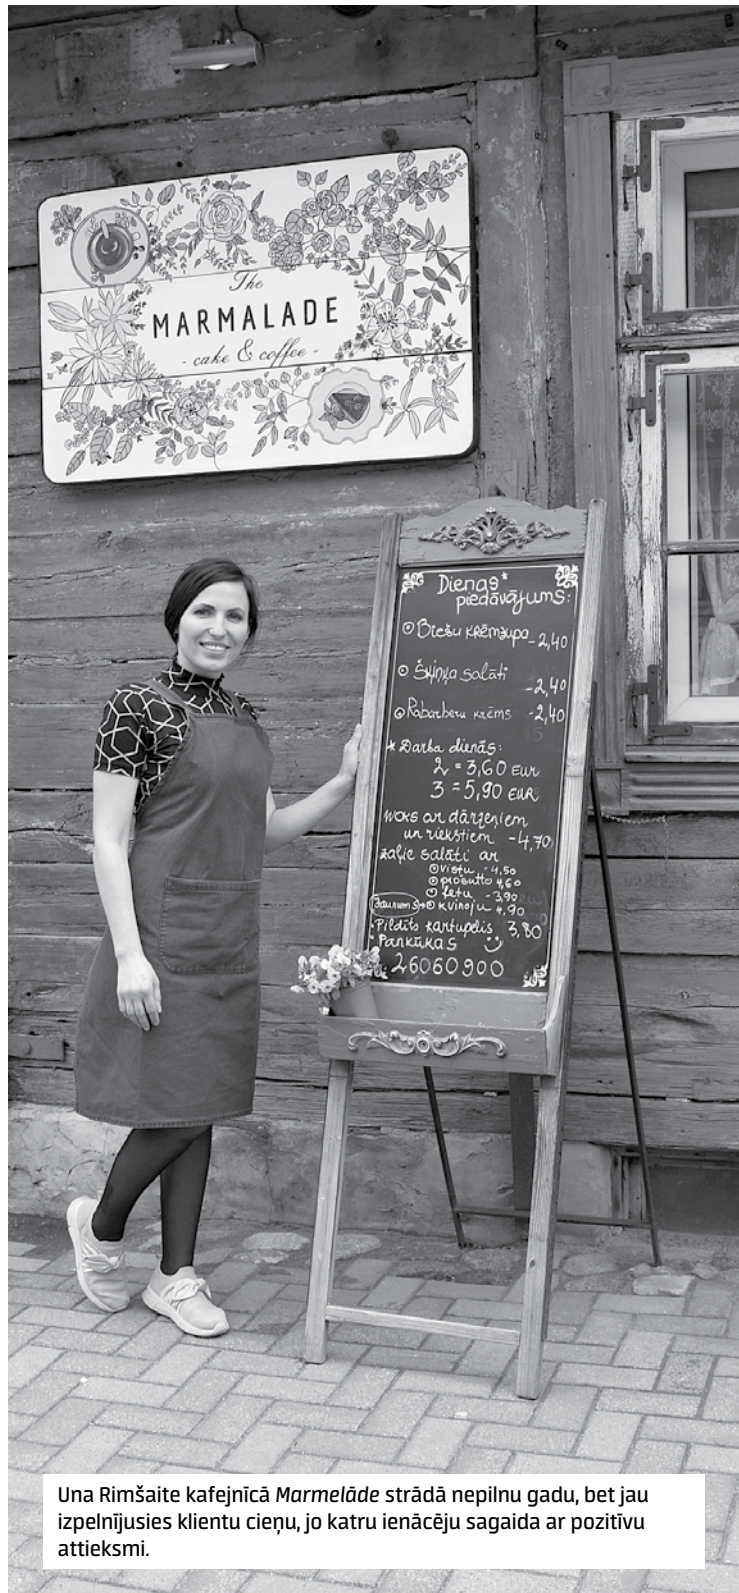 The
MARMALADE
- cake & coffee -
Dienas*
piedāvājums:
Biešu krēmzupa -2,40
Šķiņķa salāti
-2,40
Rabarberu krēms -2,40
* Darba dienās:
2 = 3,60 EUR
3 = 5,90 EUR
Woks ar dārzeņiem
un riekstiem -4,70
Zaļie salāti ar
vistu - 4,50
prosutto 4,60
fetu - 3,90
Jaunums→ kvinoju 4,90
Pildīts kartupelis 3,80
Pankūkas
26060900
Una Rimšaite kafejnīcā Marmelāde strādā nepilnu gadu, bet jau
izpelnījusies klientu cieņu, jo katru ienācēju sagaida ar pozitīvu
attieksmi.